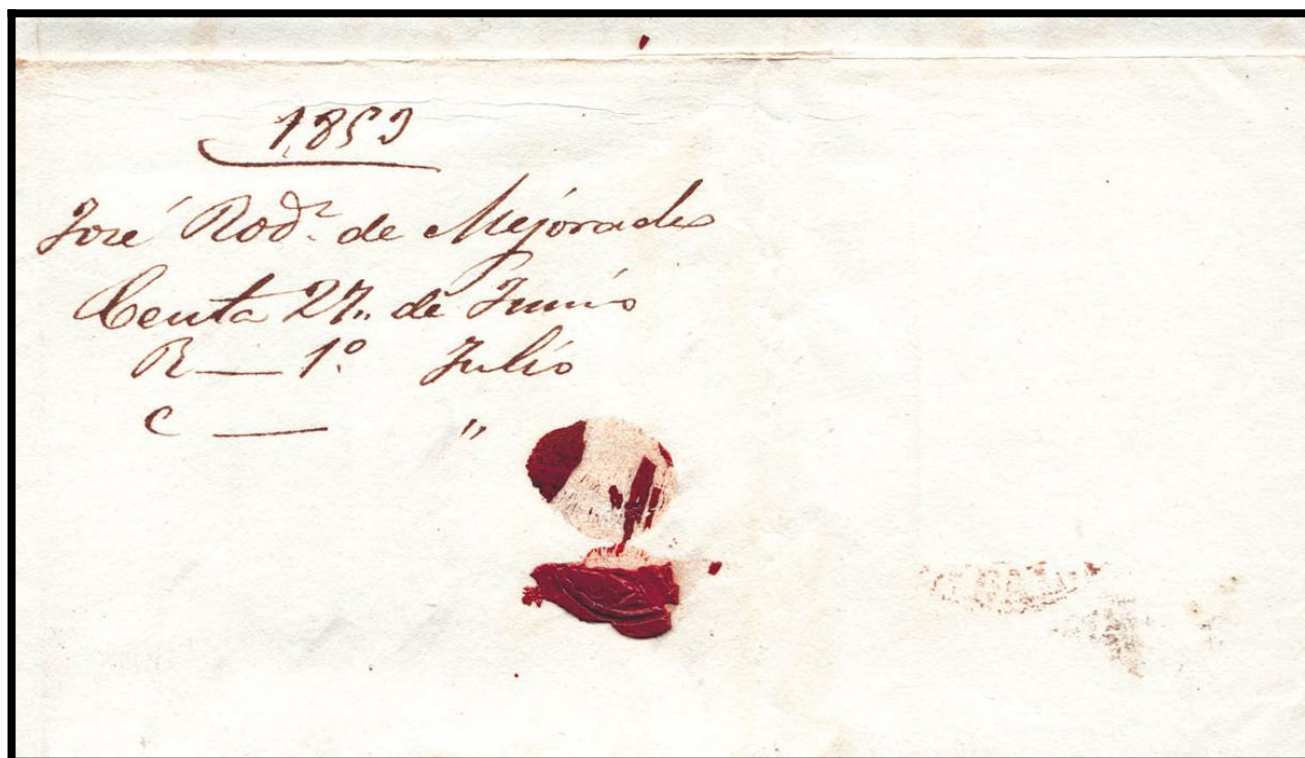 1,853
José Rodz. de Mejorada
Ceuta 27,, de Junio
R — 1º Julio
C — "